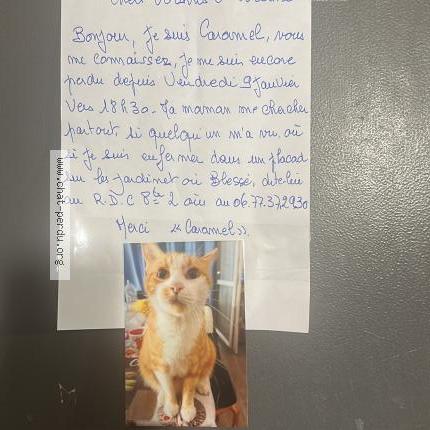 Bonjour, Je suis Caramel, vous
me connaissez, je me suis encore
perdu depuis Vendredi 9 Janvier
Vers 18h30. Ma maman me cherche
partout si quelqu'un m'a vu, ou
si je suis enfermer dans un placad
les jardinet où Blessé, dite
au R.D.C 8 2 au 06.77.37.29.30
Merci "Caramel".
www.chat-perdu.org